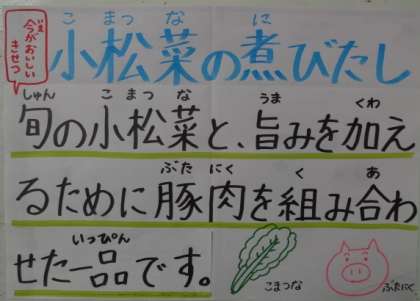 いまが おいしい きせつ
こ まつ な に
小松菜の煮びたし
しゅん こ まつ な うま くわ
旬の小松菜と、旨みを加え
ぶた にく く あ
るために豚肉を組み合わ
いっぴん
せた一品です。
こまつな
ぶたにく